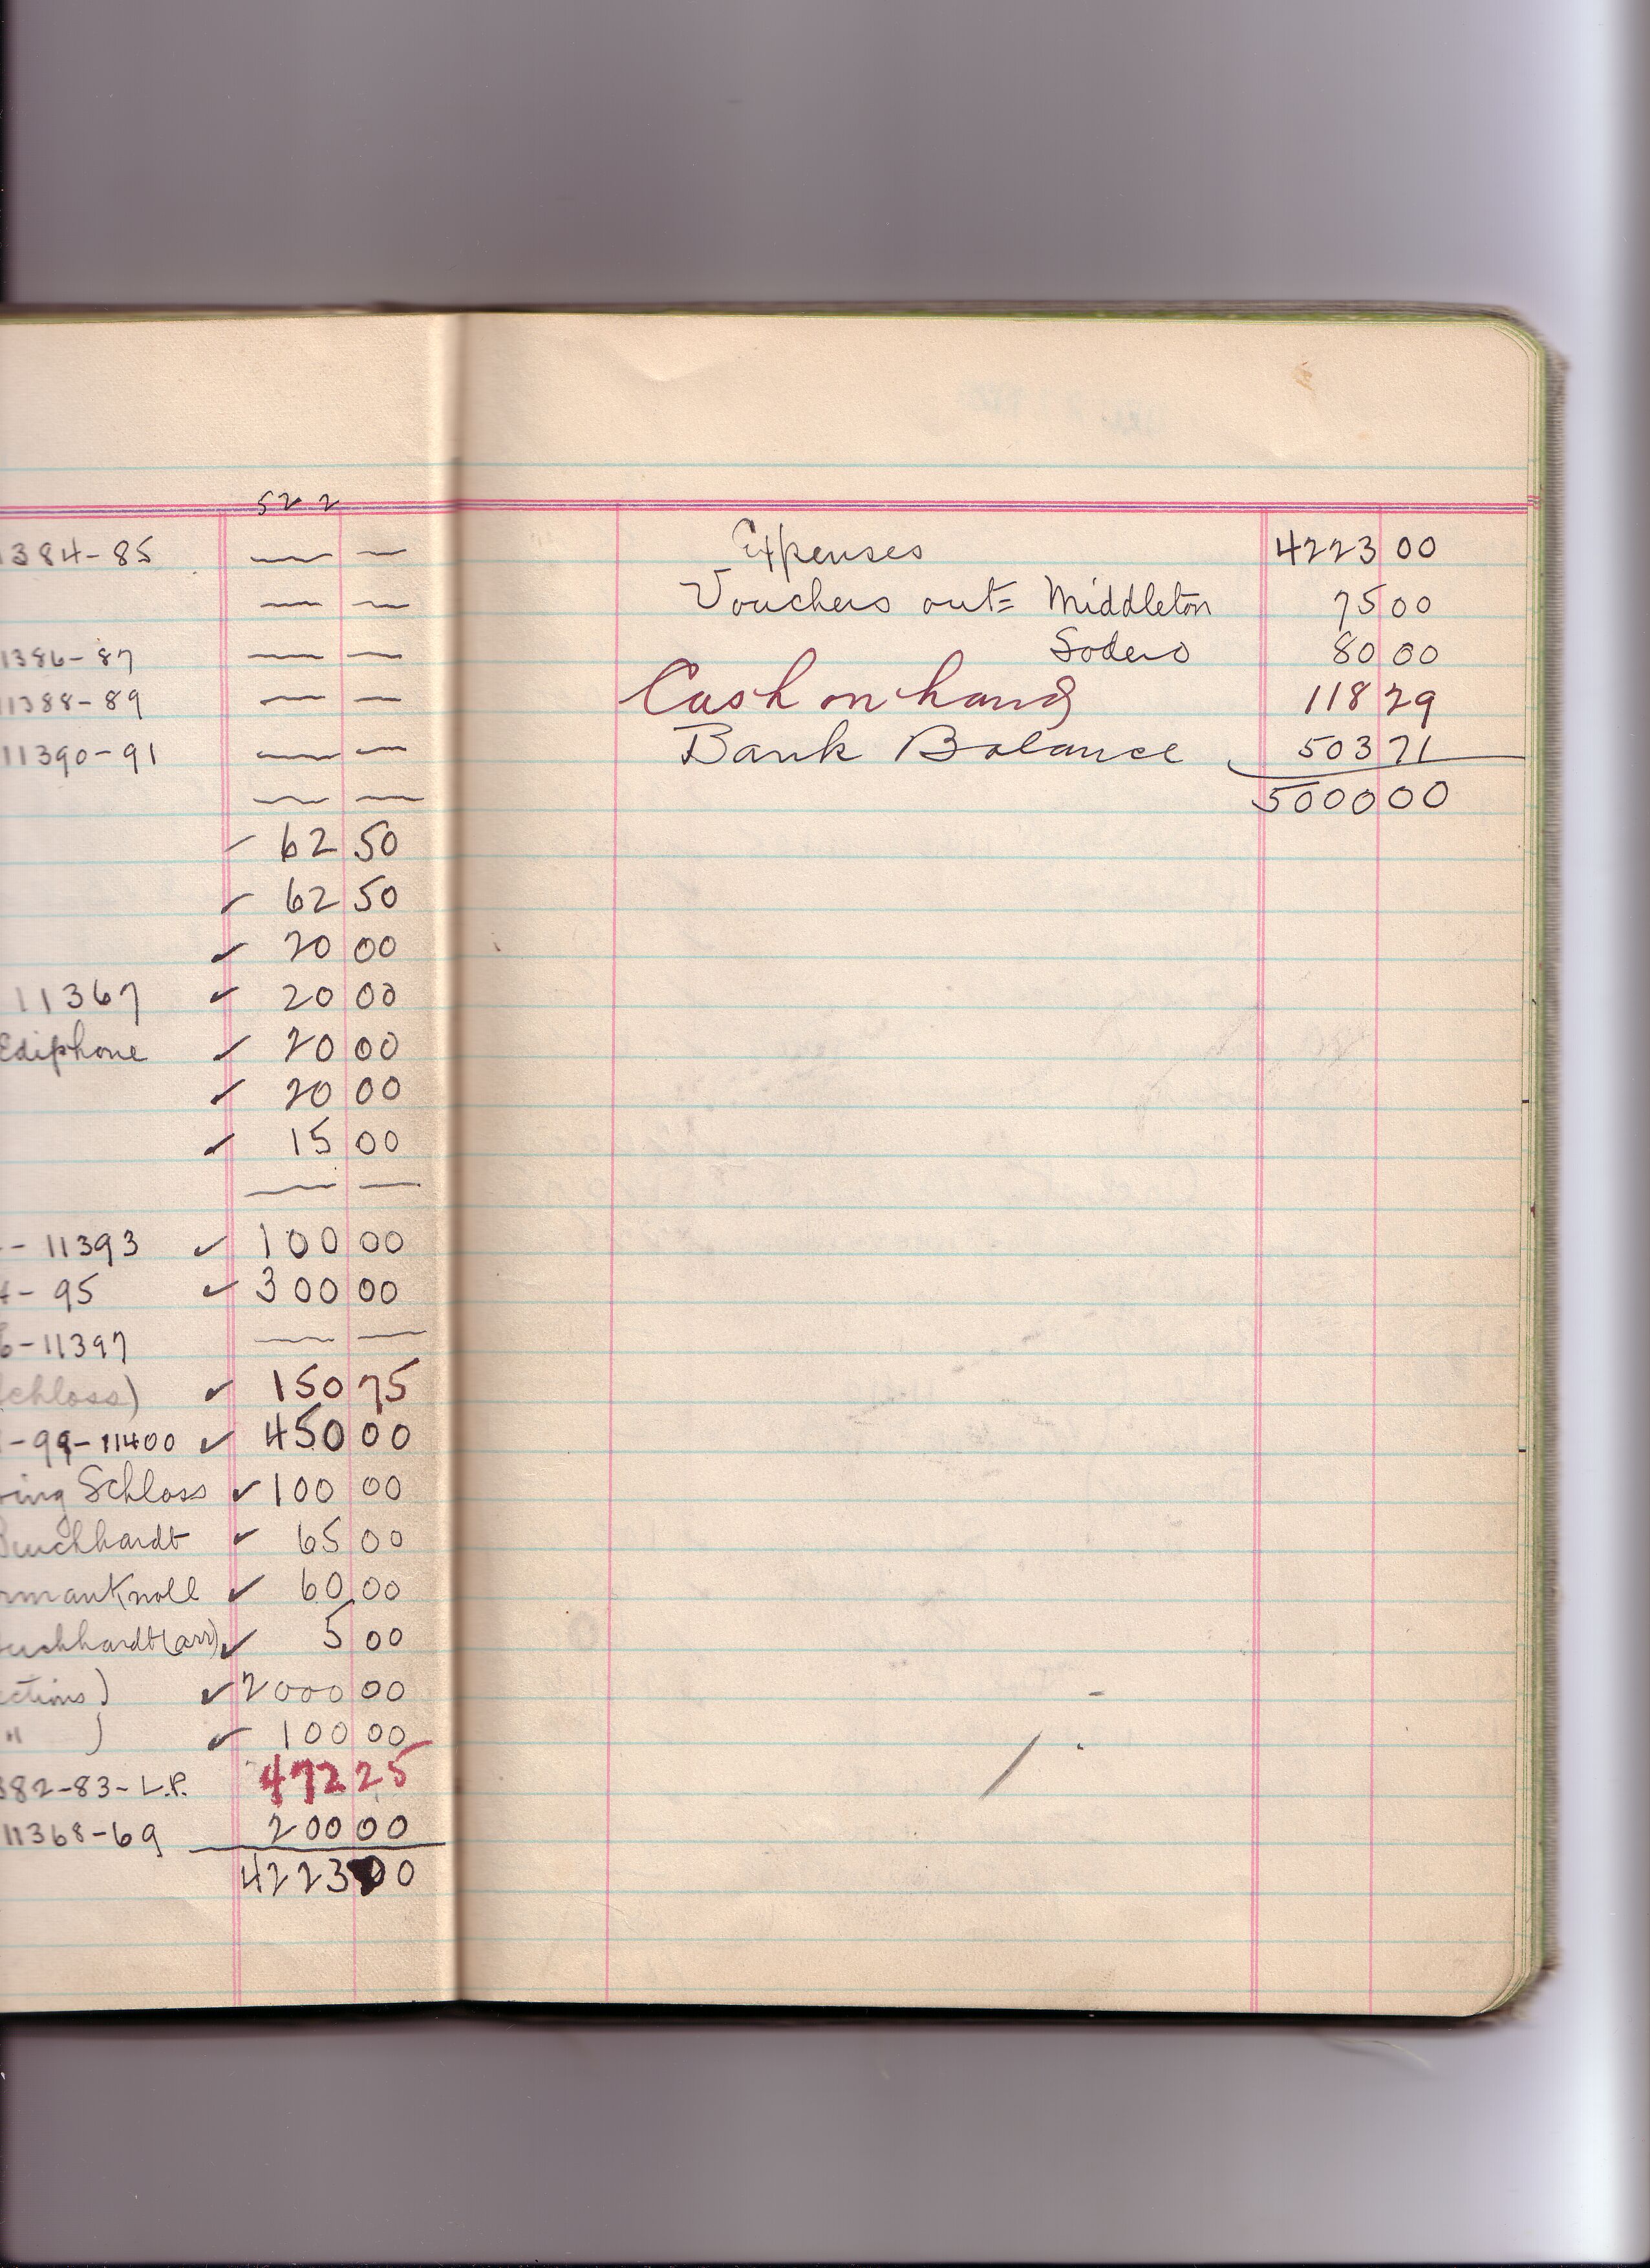 52 2
1384-85 — —
— —
1386-87 — —
11388-89 — —
11390-91 — —
— —
✓ 62 50
✓ 62 50
✓ 20 00
11367 ✓ 20 00
Ediphone ✓ 20 00
✓ 20 00
✓ 15 00
— —
- 11393 ✓ 100 00
- 95 ✓ 300 00
-11397 — —
Schloss) ✓ 150 75
-99-11400 ✓ 450 00
Schloss ✓ 100 00
Burchhardt ✓ 65 00
Knoll ✓ 60 00
(arr) ✓ 5 00
ections) ✓ 2000 00
" ) ✓ 100 00
382-83-L.P. 472 25
11368-69 200 00
4223 00
Expenses 4223 00
Vouchers out= Middleton 75 00
Sodero 80 00
Cash on hand 118 29
Bank Balance 503 71
5000 00